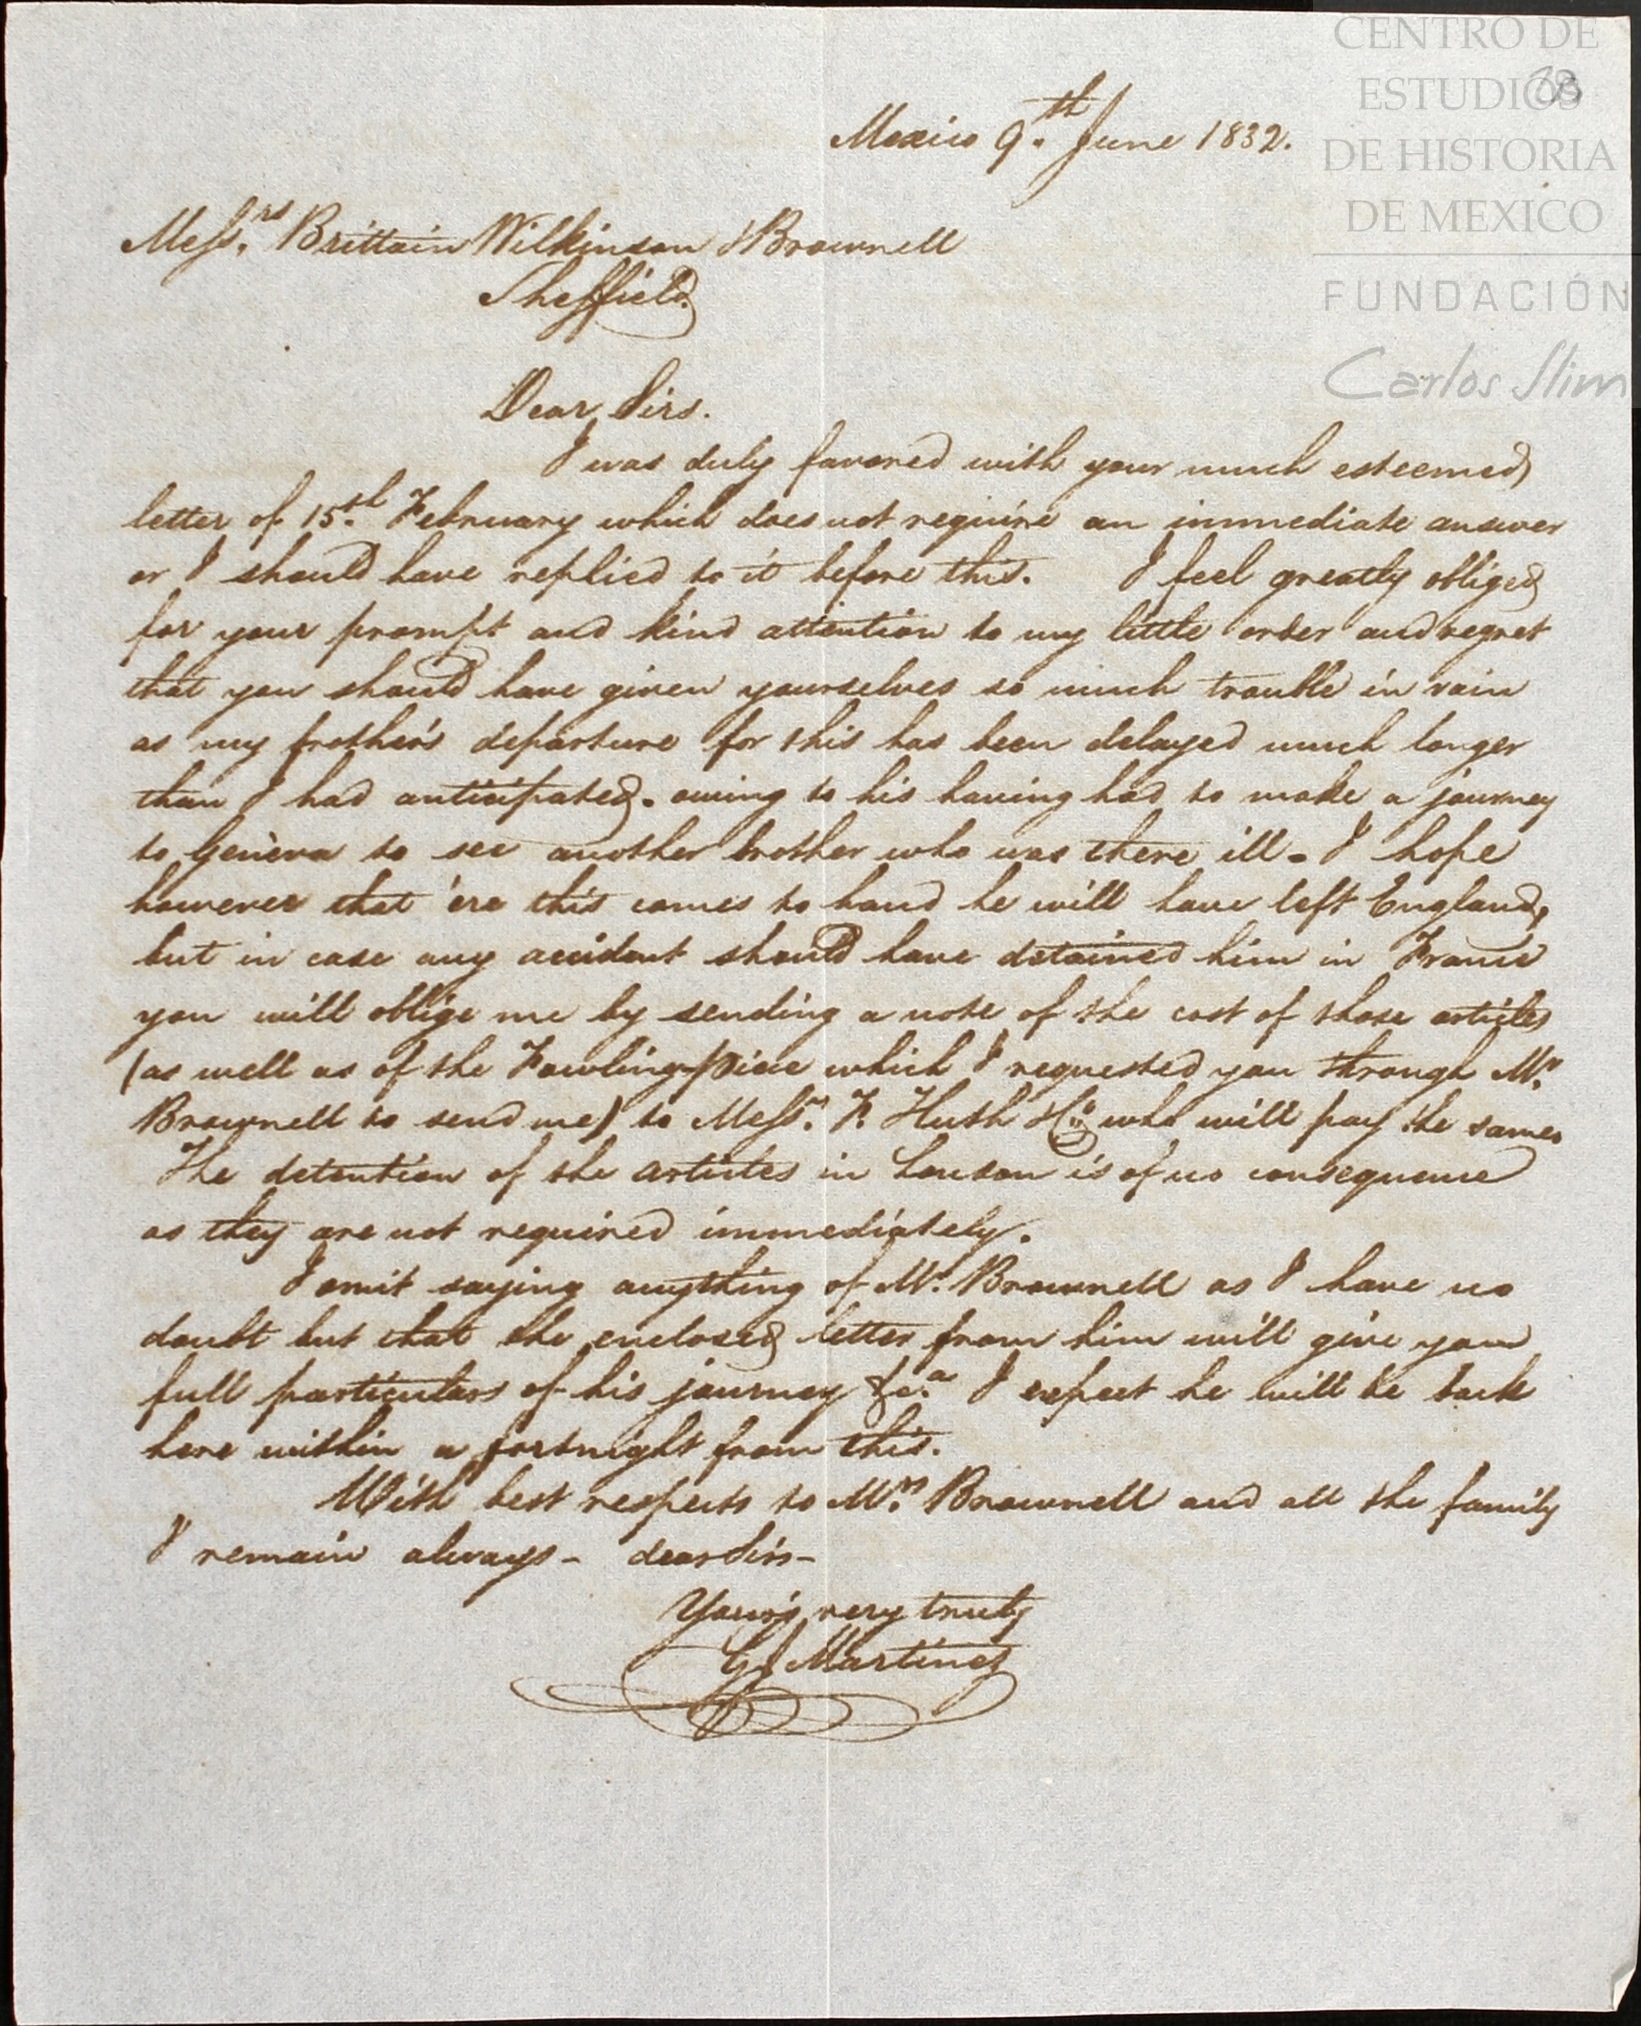 CENTRO DE
ESTUDIOS
DE HISTORIA
DE MEXICO
FUNDACIÓN
Carlos Slim
Mexico 9.th June 1832.
Messrs. Brittain Wilkinson & Brownell
Sheffield.
Dear Sirs.
I was duly favored with your much esteemed
letter of 15.th February which does not require an immediate answer
or I should have replied to it before this. I feel greatly obliged
for your prompt and kind attention to my little order and regret
that you should have given yourselves so much trouble in vain
as my brother's departure for this has been delayed much longer
than I had anticipated. owing to his having had to make a journey
to Geneva to see another brother who was there ill. I hope
however that 'ere this comes to hand he will have left England,
but in case any accident should have detained him in France
you will oblige me by sending a note of the cost of those articles
(as well as of the Fowling-piece which I requested you through Mr.
Brownell to send me) to Messrs. F. Huth & Co. who will pay the same.
The detention of the articles in London is of no consequence
as they are not required immediately.
I omit saying anything of Mr. Brownell as I have no
doubt but that the enclosed letter from him will give you
full particulars of his journey &c.a I expect he will be back
here within a fortnight from this.
With best respects to Mrs. Brownell and all the family
I remain always - dear Sirs -
Your's very truly
G J Martinez